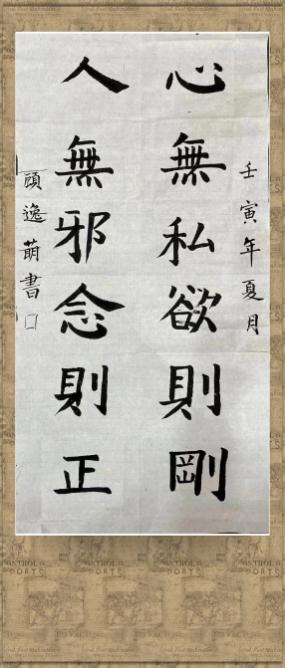 壬寅年夏月
心無私欲則剛
人無邪念則正
顧逸萌書